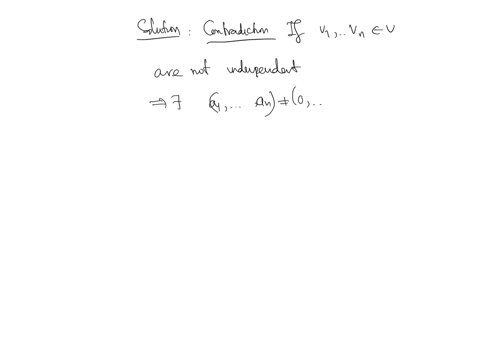 Solution : Contradiction If v₁, .. vₙ ∈ V
are not independent
⇒ ∃ (a₁, ... aₙ) ≠ (0, ..